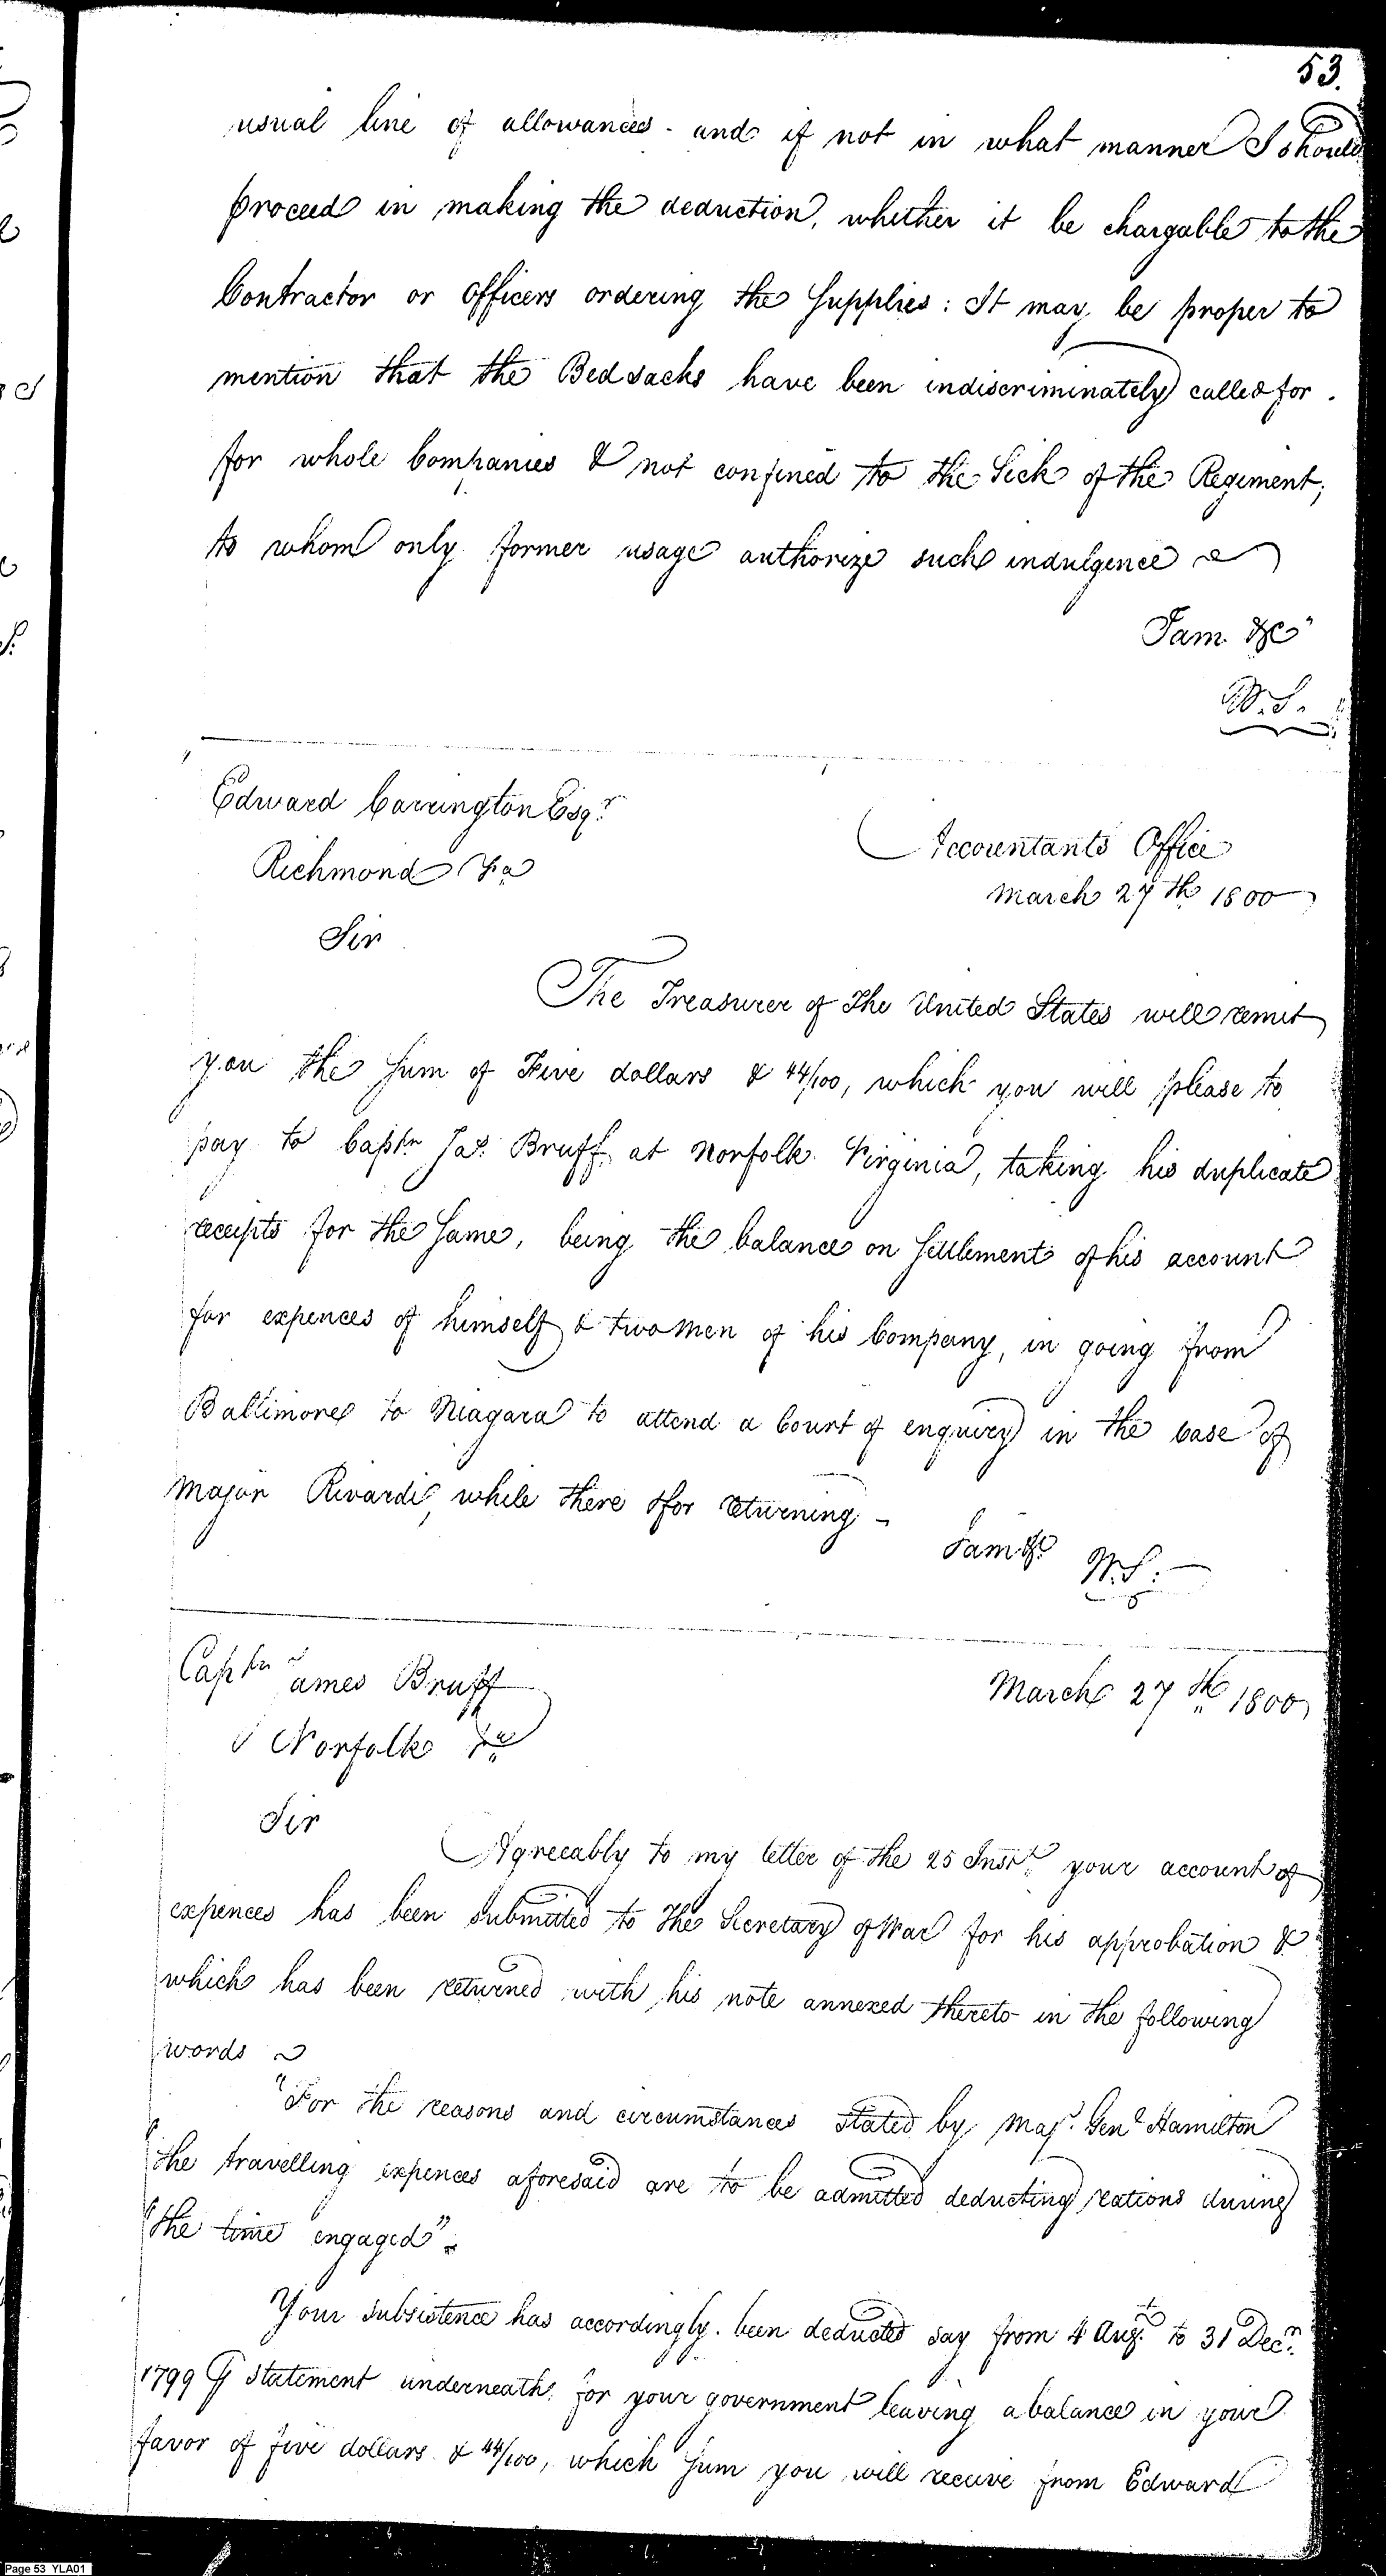 53.
usual line of allowances - and if not in what manner I should
proceed in making the deduction, whether it be chargable to the
Contractor or Officers ordering the Supplies: It may be proper to
mention that the Bed sacks have been indiscriminately called for.
for whole Companies & not confined to the Sick of the Regiment;
to whom only former usage authorize such indulgence
I am &c
W.S.
Edward Carrington Esqr.
Accountants Office
Richmond Va
March 27th 1800
Sir
The Treasurer of The United States will remit
you the Sum of Five dollars & 44/100, which you will please to
pay to Captn Jas. Bruff at Norfolk Virginia, taking his duplicate
receipts for the Same, being the balance on Settlement of his account
for expences of himself & two men of his Company, in going from
Baltimore to Niagara to attend a Court of enquiry in the Case of
Major Rivardi, while there & for returning -
I am &c W.S.
Captn James Bruff
March 27th 1800
Norfolk Va
Sir
Agreeably to my letter of the 25 Inst. your account of
expences has been submitted to the Secretary of War for his approbation &
which has been returned with his note annexed thereto in the following
words
"For the reasons and circumstances stated by Majr. Genl Hamilton
"the travelling expences aforesaid are to be admitted deducting rations during
"the time engaged".
Your subsistence has accordingly been deducted say from 4 Augt. to 31 Decr.
1799 statement underneath for your government leaving a balance in your
favor of five dollars & 44/100, which Sum you will receive from Edward
Page 53 YLA01